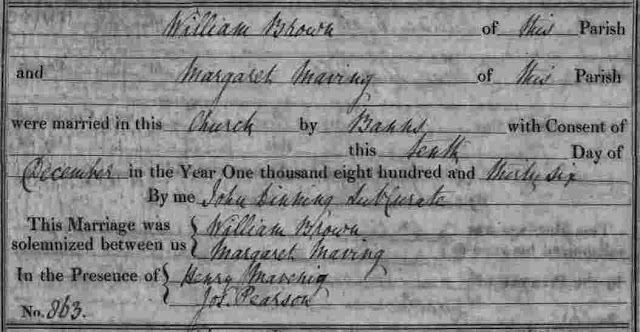 William Brown of this Parish
and Margaret Maving of this Parish
were married in this Church by Banns with Consent of
this tenth Day of
December in the Year One thousand eight hundred and thirty six
By me John Dinning SubCurate
This Marriage was solemnized between us { William Brown
Margaret Maving
In the Presence of { Henry
Jos. Pearson
No. 863.